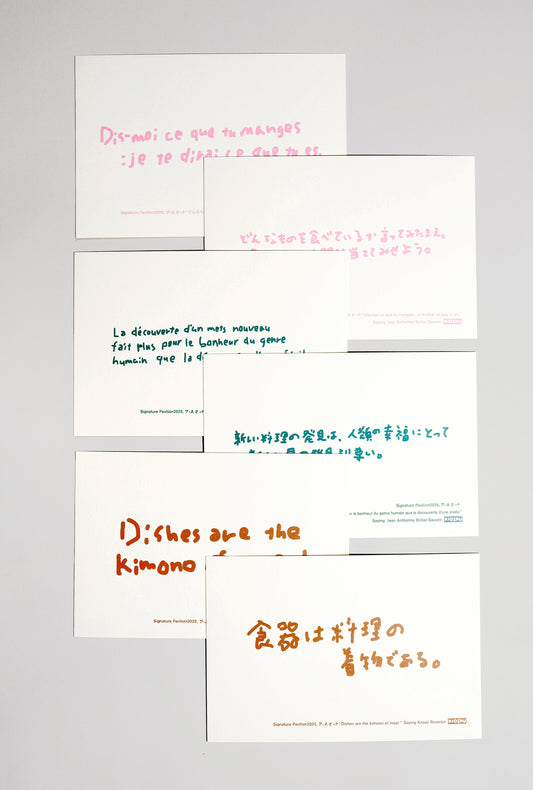 Dis-moi ce que tu manges
: je te dirai ce que tu es.
Signature Pavilion2025,
どんなものを食べているか言ってみたまえ。
当ててみせよう。
"Dis-moi ce que tu manges : je te dirai ce que tu es."
Saying Jean Anthelme Brillat-Savarin
La découverte d'un mets nouveau
fait plus pour le bonheur du genre
humain que la dé
Signature Pavilion2025,
新しい料理の発見は、人類の幸福にとって
星の発見より尊い。
Signature Pavilion2025,
le bonheur du genre humain que la découverte d'une étoile."
Saying Jean Anthelme Brillat-Savarin
Dishes are the
kimono
Signature Pavilion2025,
食器は料理の
着物である。
Signature Pavilion2025, "Dishes are the kimono of meal." Saying Kitaoji Rosanjin